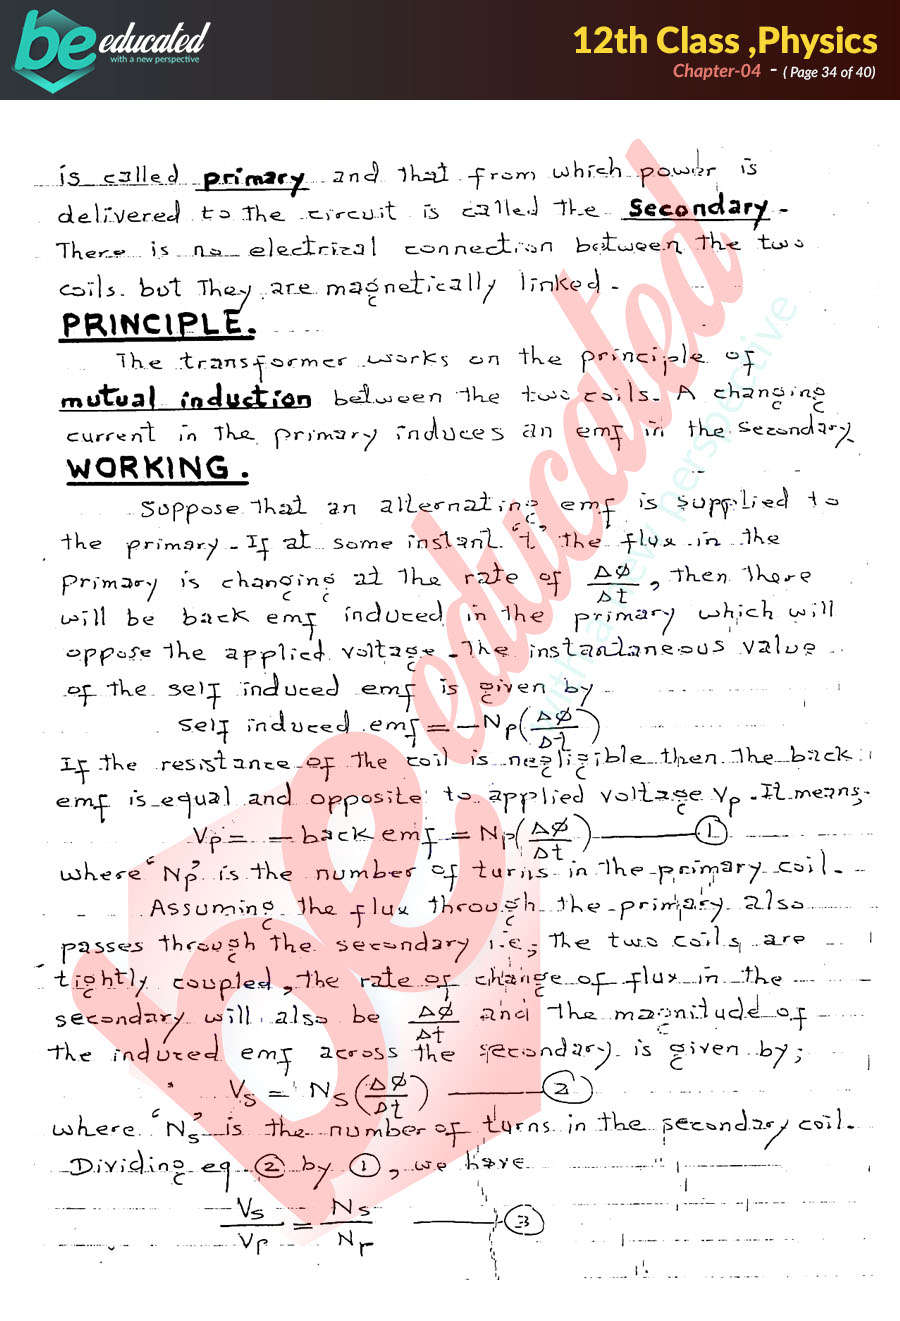 be educated
with a new perspective
12th Class ,Physics
Chapter-04 - ( Page 34 of 40)
is called primary and that from which power is
delivered to the circuit is called the Secondary.
There is no electrical connection between the two
coils. but They are magnetically linked.
PRINCIPLE.
The transformer works on the principle of
mutual induction between the two coils. A changing
current in the primary induces an emf in the secondary
WORKING.
Suppose that an alternating emf is supplied to
the primary. If at some instant "t" the flux in the
primary is changing at the rate of ΔΦ/Δt, then there
will be back emf induced in the primary which will
oppose the applied voltage. The instantaneous value
of the self induced emf is given by
self induced emf = - Np(ΔΦ/Δt)
If the resistance of the coil is negligible then the back
emf is equal and opposite to applied voltage Vp. It means,
Vp = - back emf = Np(ΔΦ/Δt) ——— ①
where "Np" is the number of turns in the primary coil.
Assuming the flux through the primary also
passes through the secondary i.e; the two coils are
tightly coupled, the rate of change of flux in the
secondary will also be ΔΦ/Δt and the magnitude of
the induced emf across the secondary is given by;
Vs = Ns(ΔΦ/Δt) ——— ②
where 'Ns' is the number of turns in the secondary coil.
Dividing eq ② by ①, we have
Vs/Vp = Ns/Np ——— ③
be educated
with a new perspective